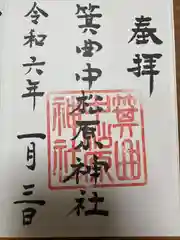 奉拝
箕曲中松原神社
箕曲
中松原
神社
令和六年
一月三日